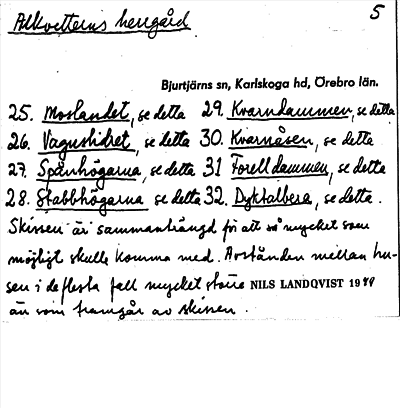 Alkvetterns herrgård 5
Bjurtjärns sn, Karlskoga hd, Örebro län.
25. Moslandet, se detta 29. Kvarndammen, se detta
26. Vagnslidret, se detta 30. Kvarnåsen, se detta
27. Spånhögarna, se detta 31 Forelldammen, se detta
28. Stabbhögarna se detta 32. Dyktalbera, se detta.
Skissen är sammanhängd för att så mycket som
möjligt skulle komma med. Avstånden mellan hu-
sen i de flesta fall mycket större NILS LANDQVIST 19
än som framgår av skissen.